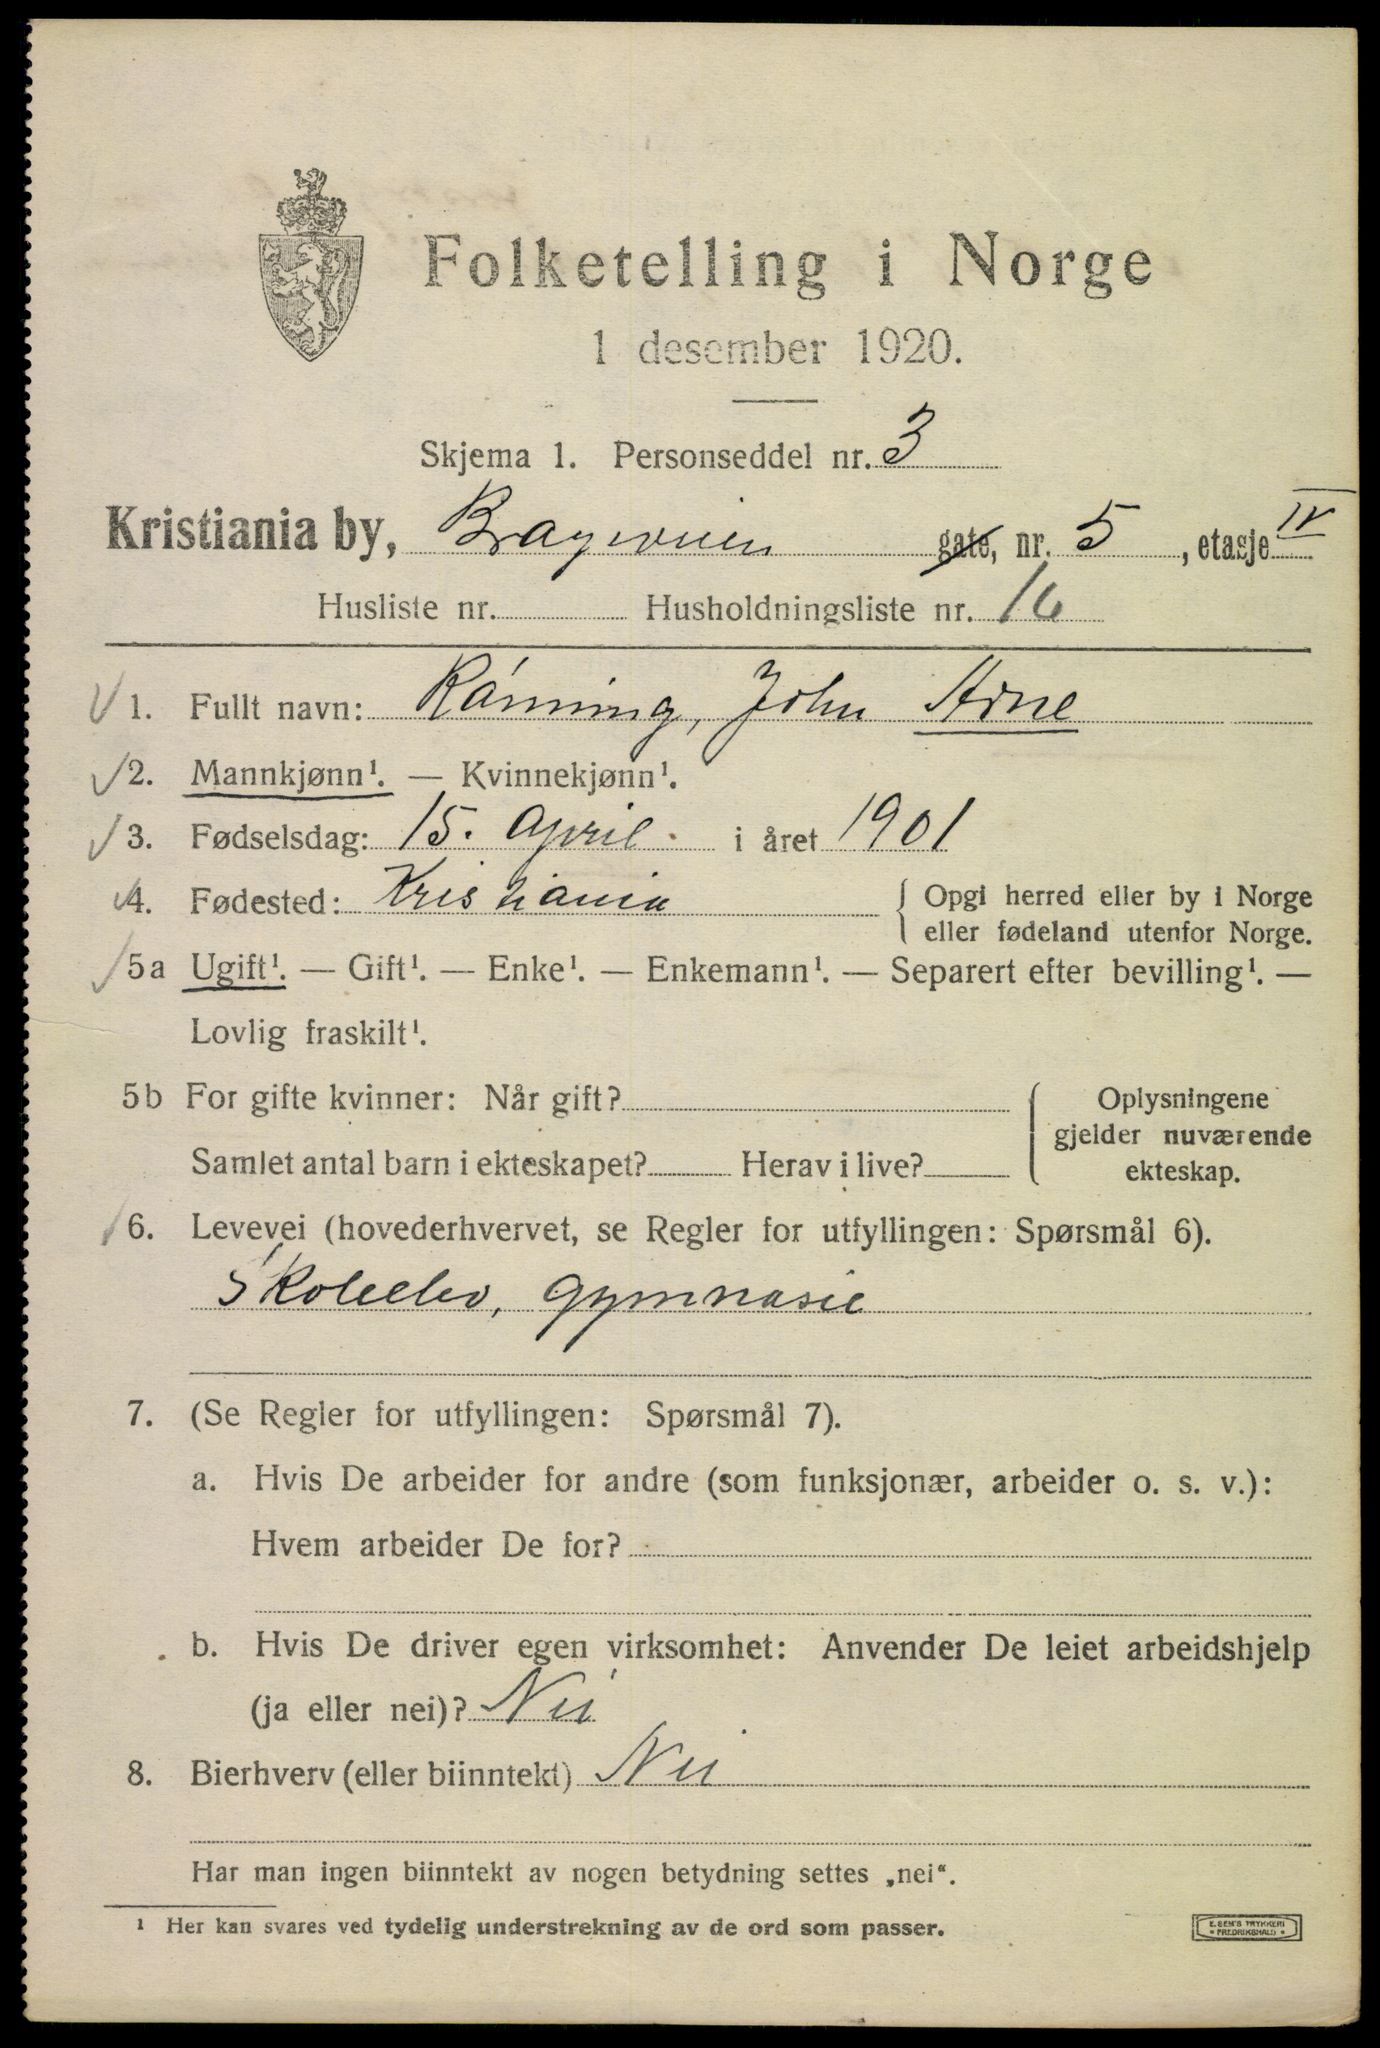 Folketelling i Norge
1 desember 1920.
Skjema 1. Personseddel nr. 3
Kristiania by, Brageveien gate, nr. 5, etasje IV
Husliste nr. Husholdningsliste nr. 16
1. Fullt navn: Rónning, John Arne
2. Mannkjønn¹. — Kvinnekjønn¹.
3. Fødselsdag: 15. April i året 1901
4. Fødested: Kristiania { Opgi herred eller by i Norge
eller fødeland utenfor Norge.
5a Ugift¹. — Gift¹. — Enke¹. — Enkemann¹. — Separert efter bevilling¹. —
Lovlig fraskilt¹.
5b For gifte kvinner: Når gift? { Oplysningene
gjelder nuværende
Samlet antal barn i ekteskapet? Herav i live?
ekteskap.
6. Levevei (hovederhvervet, se Regler for utfyllingen: Spørsmål 6).
Skoleelev, gymnasie
7. (Se Regler for utfyllingen: Spørsmål 7).
a. Hvis De arbeider for andre (som funksjonær, arbeider o. s. v.):
Hvem arbeider De for?
b. Hvis De driver egen virksomhet: Anvender De leiet arbeidshjelp
(ja eller nei)? Nei
8. Bierhverv (eller biinntekt) Nei
Har man ingen biinntekt av nogen betydning settes „nei“.
¹ Her kan svares ved tydelig understrekning av de ord som passer.
E. SEM'S TRYKKERI
FREDRIKSHALD